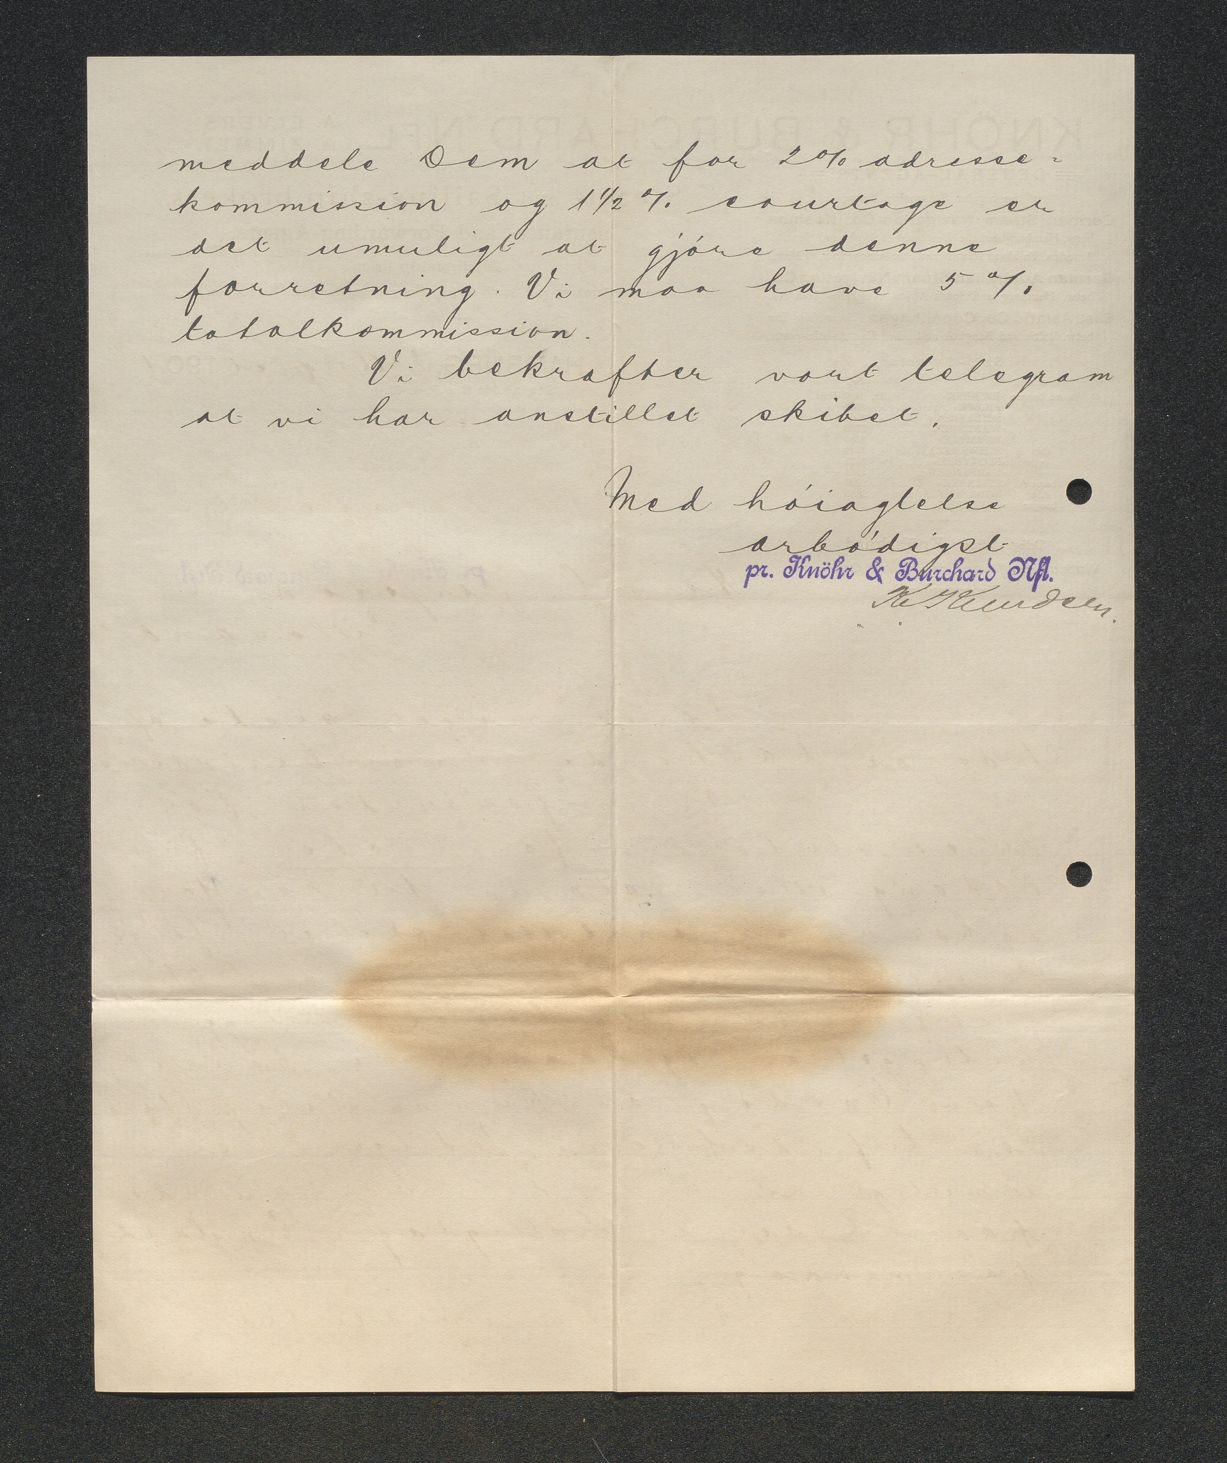 meddele Dem at for 2% adresse-
kommission og 1 1/2 % courtage er
det umuligt at gjóre denne
forretning. Vi maa have 5 %
totalkommission.
Vi bekrafter vort telegram
at vi har anstillet skibet.
Med hóiagtelse
ærbódigst
pr. Knöhr & Burchard Nfl.
K. Knudsen.